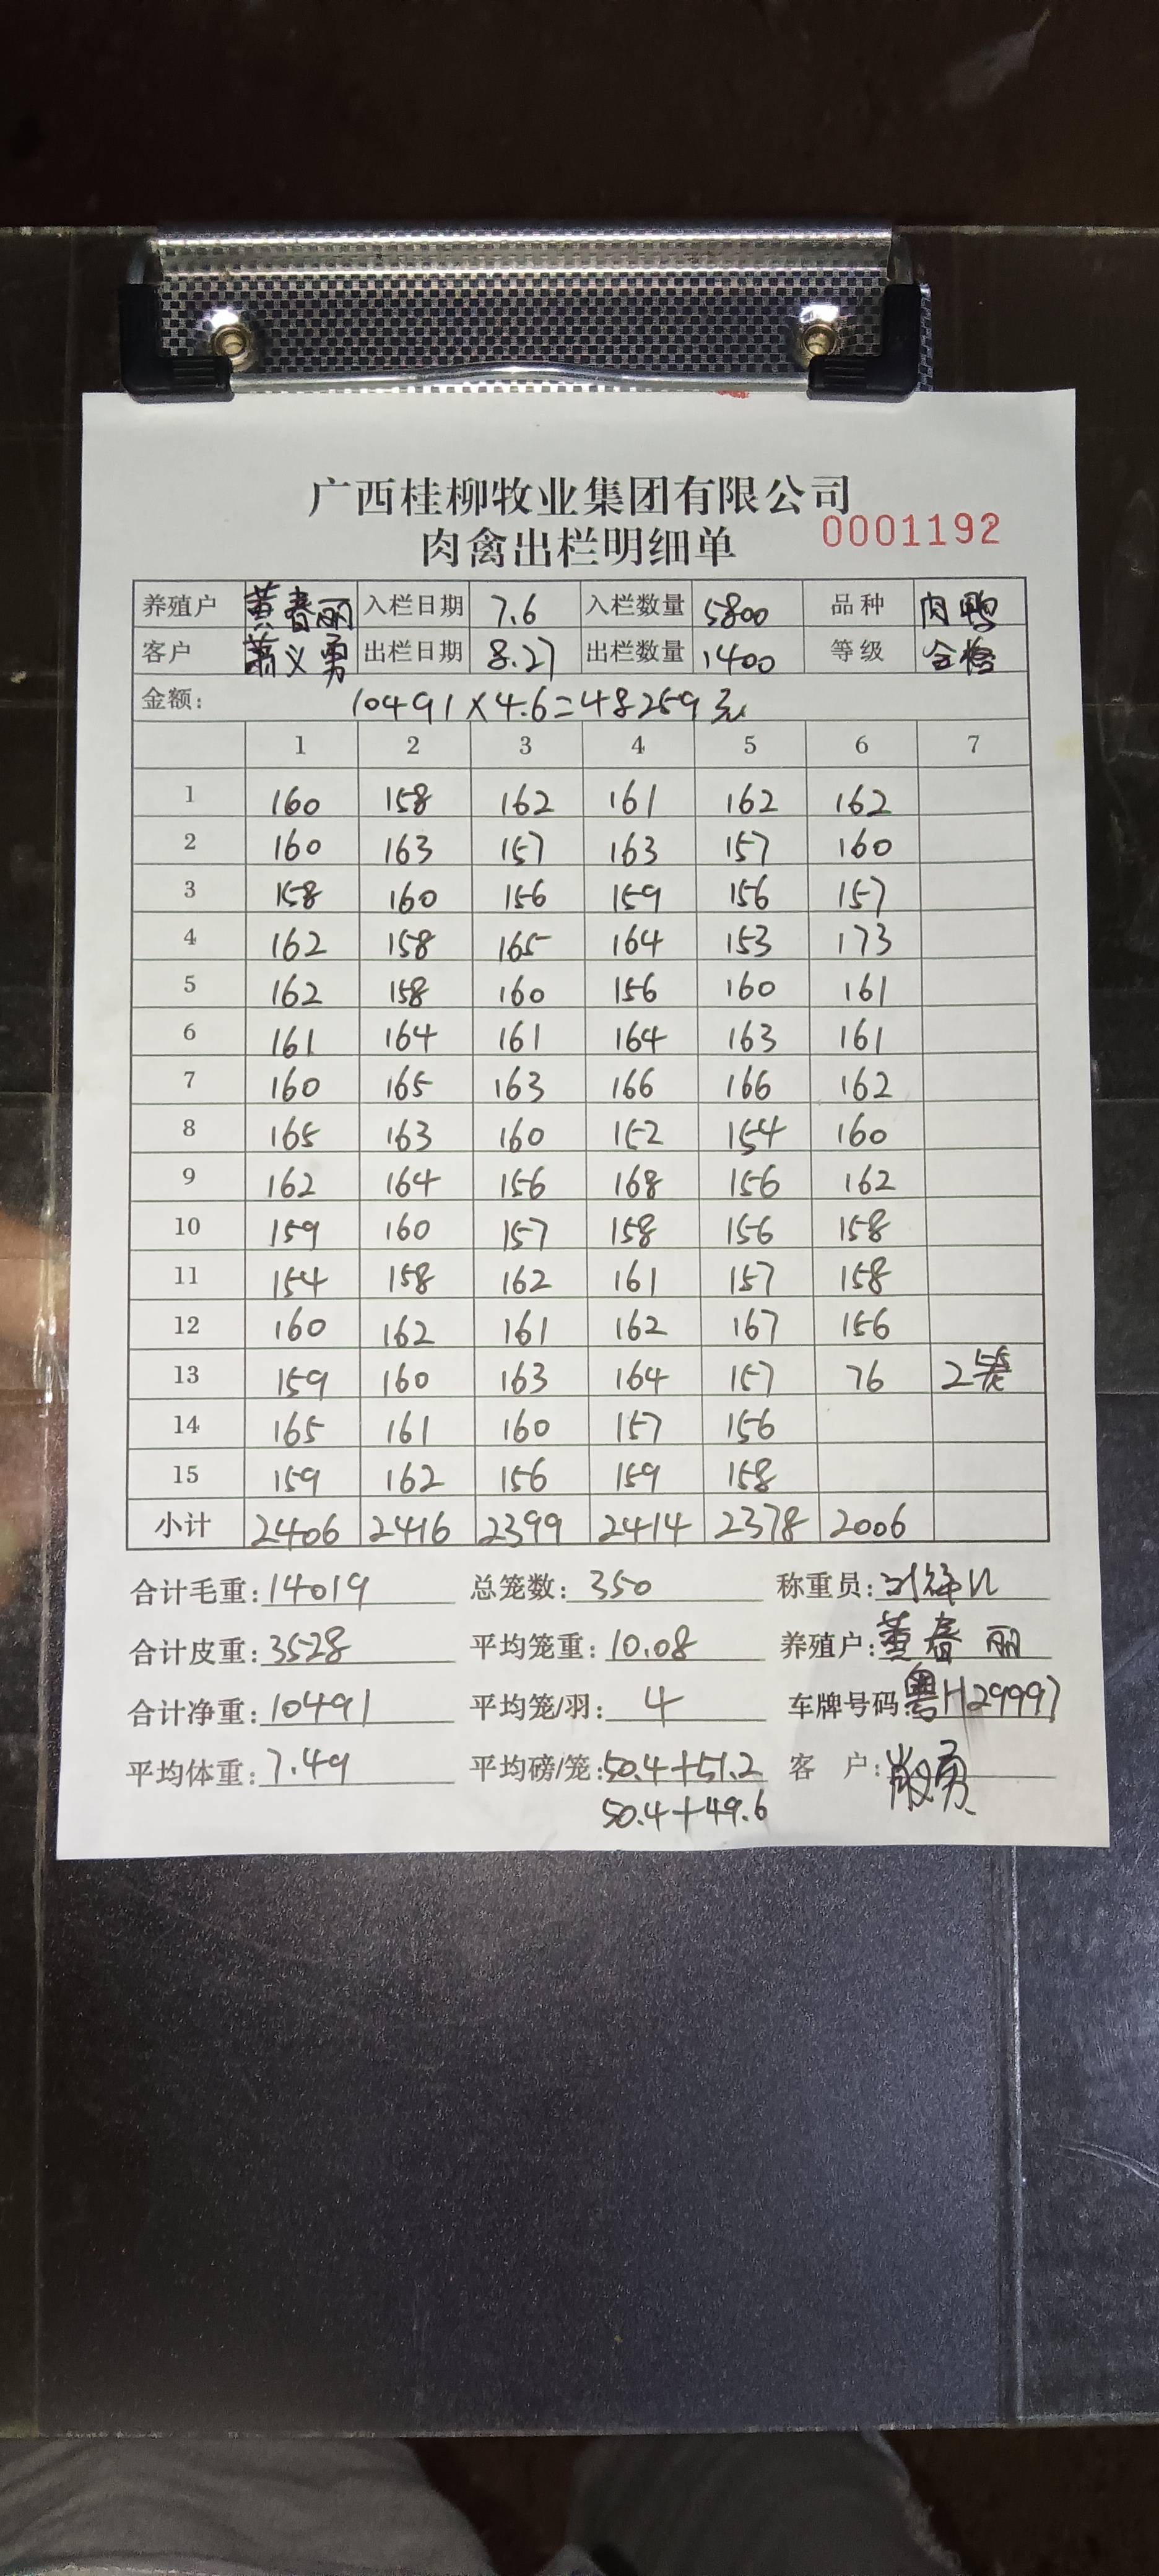 广西桂柳牧业集团有限公司
肉禽出栏明细单 0001192
养殖户 黄春丽 入栏日期 7.6 入栏数量 5800 品种 肉鸭
客户 萧义勇 出栏日期 8.27 出栏数量 1400 等级 合格
金额: 10491×4.6=48259元
1 2 3 4 5 6 7
1 160 158 162 161 162 162
2 160 163 157 163 157 160
3 158 160 156 159 156 157
4 162 158 165 164 153 173
5 162 158 160 156 160 161
6 161 164 161 164 163 161
7 160 165 163 166 166 162
8 165 163 160 152 154 160
9 162 164 156 168 156 162
10 159 160 157 158 156 158
11 154 158 162 161 157 158
12 160 162 161 162 167 156
13 159 160 163 164 157 76 2笼
14 165 161 160 157 156
15 159 162 156 159 158
小计 2406 2416 2399 2414 2378 2006
合计毛重: 14019 总笼数: 350 称重员:
合计皮重: 3528 平均笼重: 10.08 养殖户: 黄春丽
合计净重: 10491 平均笼/羽: 4 车牌号码: 粤H29997
平均体重: 7.49 平均磅/笼: 50.4+51.2 客户:
50.4+49.6